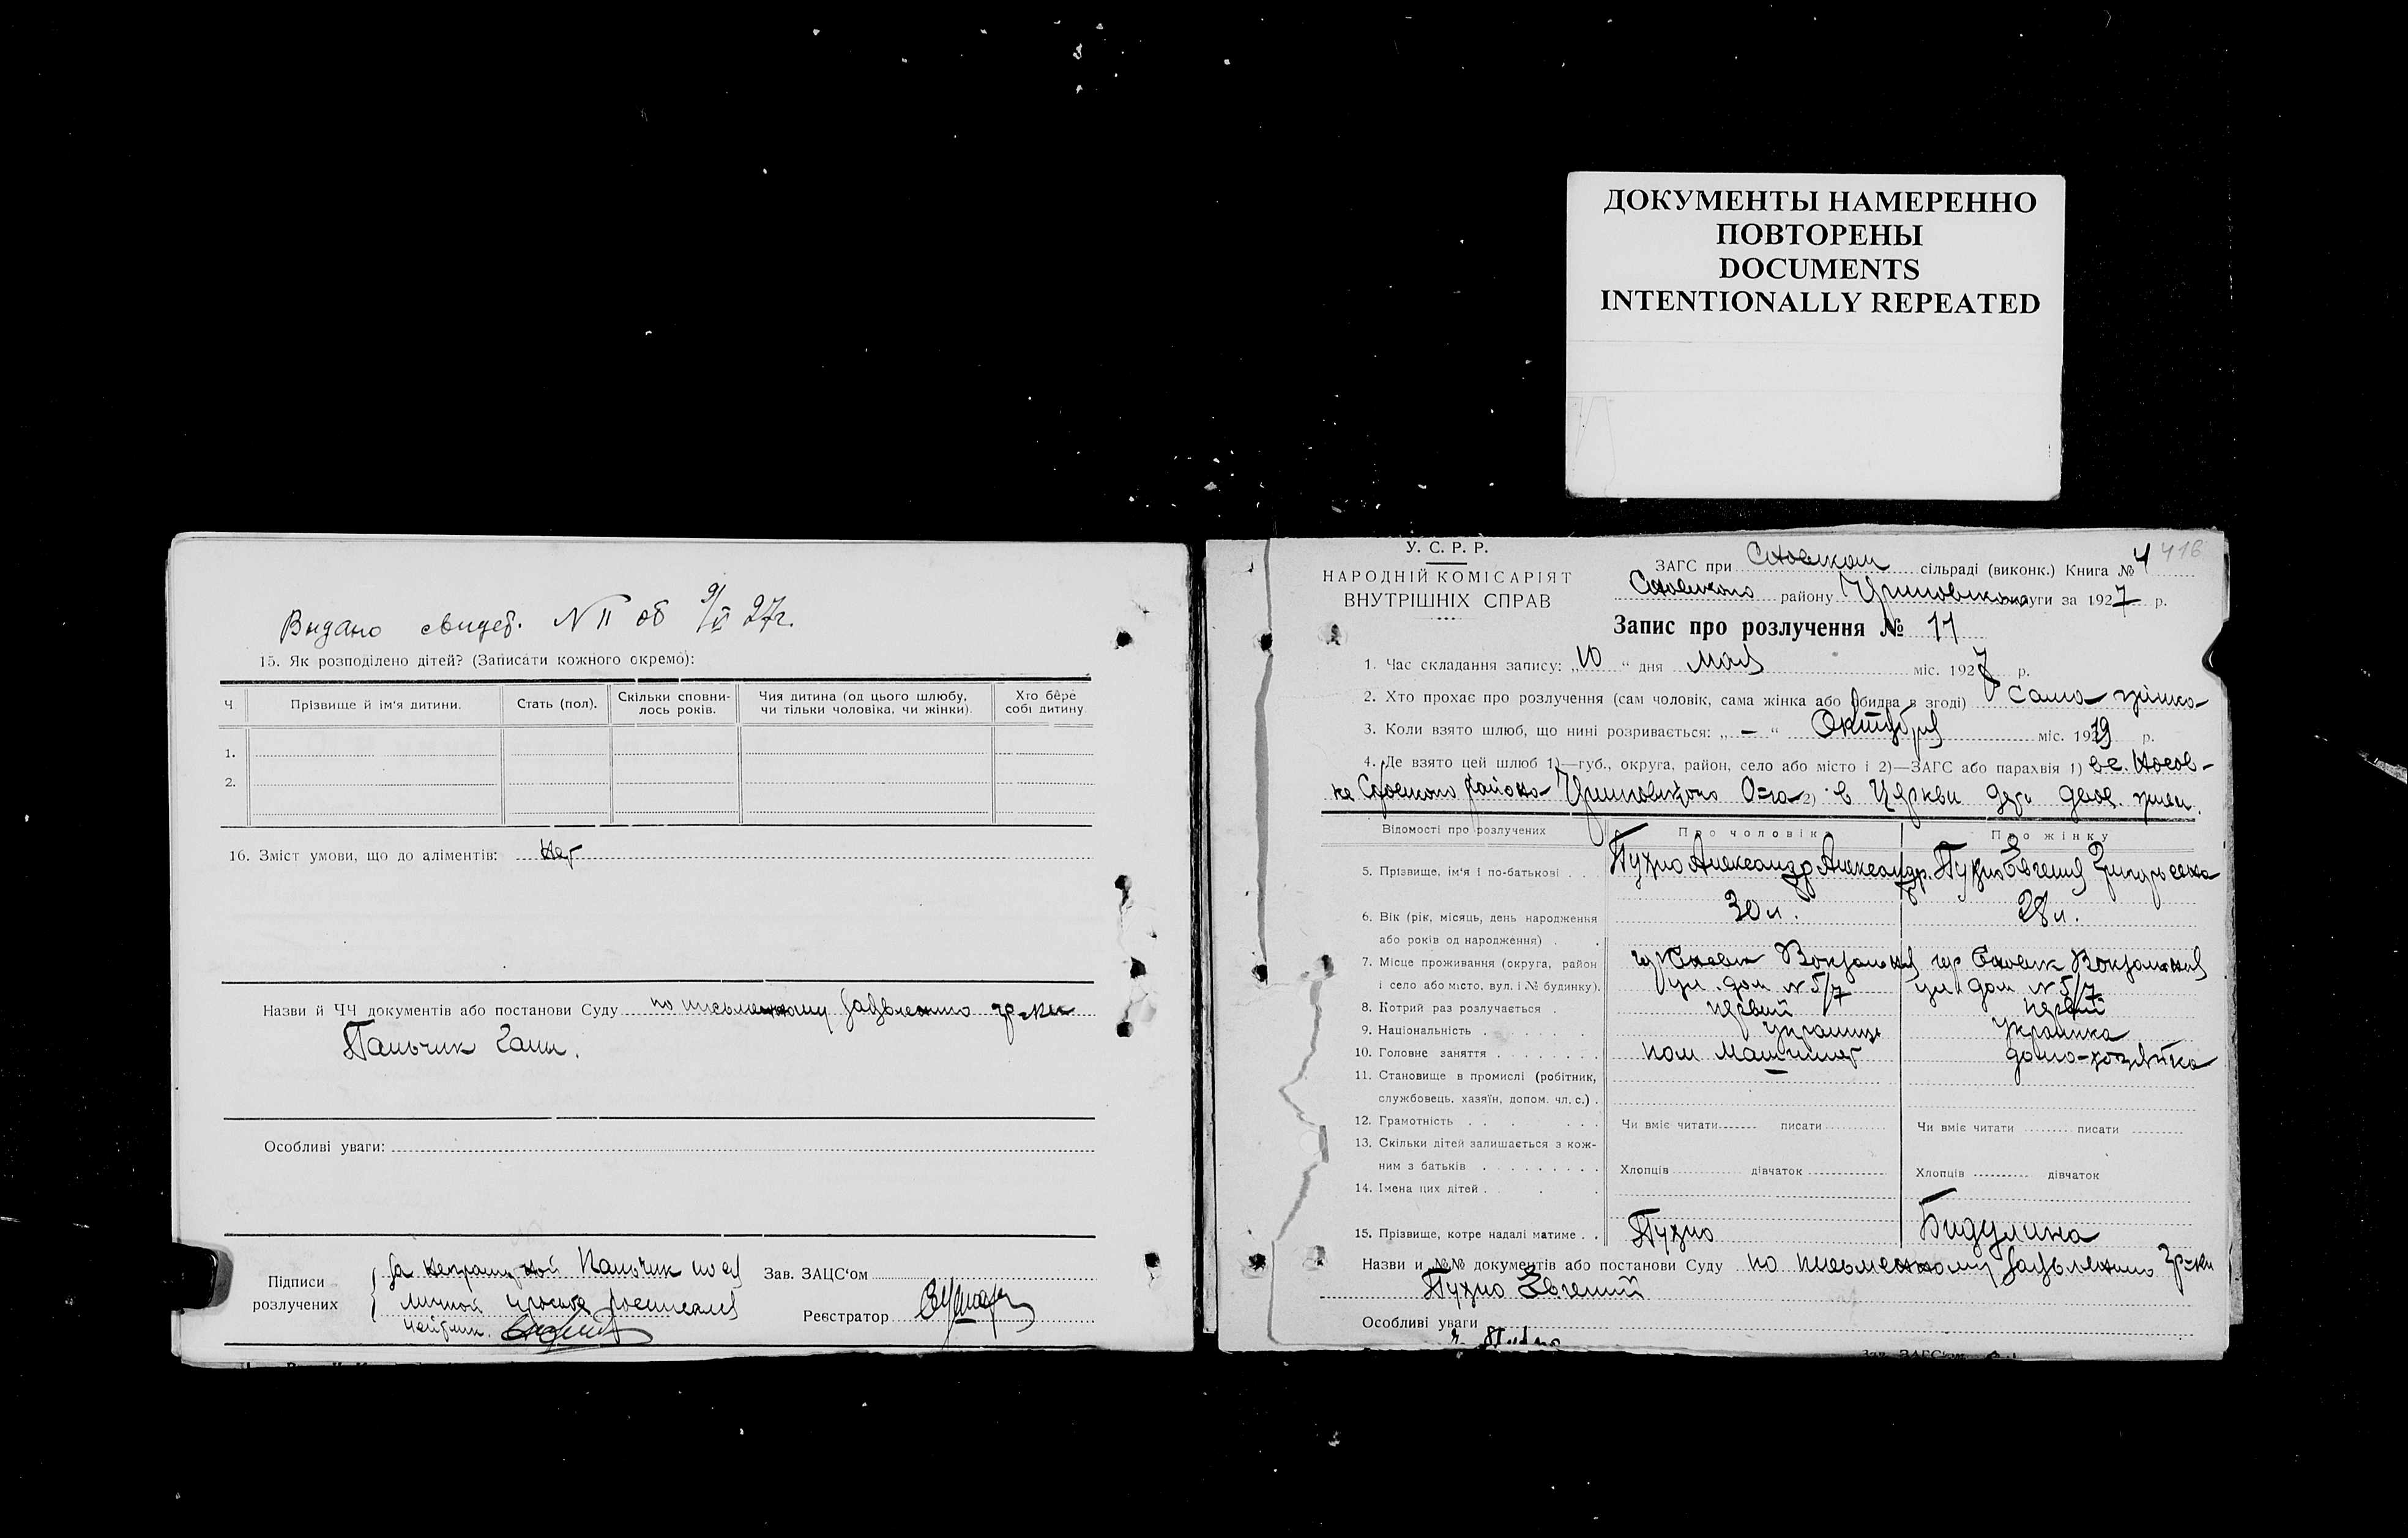 ДОКУМЕНТЫ НАМЕРЕННО
ПОВТОРЕНЫ
DOCUMENTS
INTENTIONALLY REPEATED
Видано свидет. № 11 об 9/V 27г.
15. Як розподілено дітей? (Записати кожного окремо):
Ч
Прізвище й ім‘я дитини.
Стать (пол).
Скільки сповни-
лось років.
Чия дитина (од цього шлюбу,
чи тільки чоловіка, чи жінки).
Хто бере
собі дитину
1.
2.
16. Зміст умови, що до аліментів: Нет
Назви й ЧЧ документів або постанови Суду по письменному заявлению гр-ки
Пальчик Ганы.
Особливі уваги:
Підписи
розлучених
за неграмотной Пальчик по ея
личной просьбе росписался
Зав. ЗАЦС‘ом
Реєстратор
У. С. Р. Р.
НАРОДНІЙ КОМІСАРІЯТ
ВНУТРІШНІХ СПРАВ
416
ЗАГС при Сновском сільраді (виконк.) Книга № 4
Сновского району округи за 1927 р.
Запис про розлучення № 11
1. Час складання запису: „10“ дня мая міс. 1927 р.
2. Хто прохає про розлучення (сам чоловік, сама жінка або обидва в згоді) сама жінка
3. Коли взято шлюб, що нині розривається: „—“ Октября міс. 1919 р.
4. Де взято цей шлюб 1)—губ., округа, район, село або місто і 2)—ЗАГС або парахвія 1) в с. Носов-
ке Сновского района 2) в Церкви
Відомості про розлучених
Про чоловіка
Про жінку
5. Прізвище, ім‘я і по-батькові
Пухно Александр Александр.
Пухно Евгения Григорьевна
6. Вік (рік, місяць, день народження
або років од народження)
30 л.
28 л.
7. Місце проживання (округа, район
і село або місто, вул. і № будинку).
гор Сновск Вокзальная
ул. дом № 5/7
гор Сновск Вокзальная
ул дом № 5/7
8. Котрий раз розлучається
первый
первый
9. Національність
украинец
украинка
10. Головне заняття
пом машинист
домо-хозяйка
11. Становище в промислі (робітник,
службовець, хазяїн, допом. чл. с.)
12. Грамотність
Чи вміє читати писати
Чи вміє читати писати
13. Скільки дітей залишається з кож-
ним з батьків
Хлопців дівчаток
Хлопців дівчаток
14. Імена цих дітей
15. Прізвище, котре надалі матиме
Пухно
Бидулина
Назви и №№ документів або постанови Суду по письменному заявлению Гр-ки
Пухно Евгений
Особливі уваги
Зав. ЗАГС‘ом